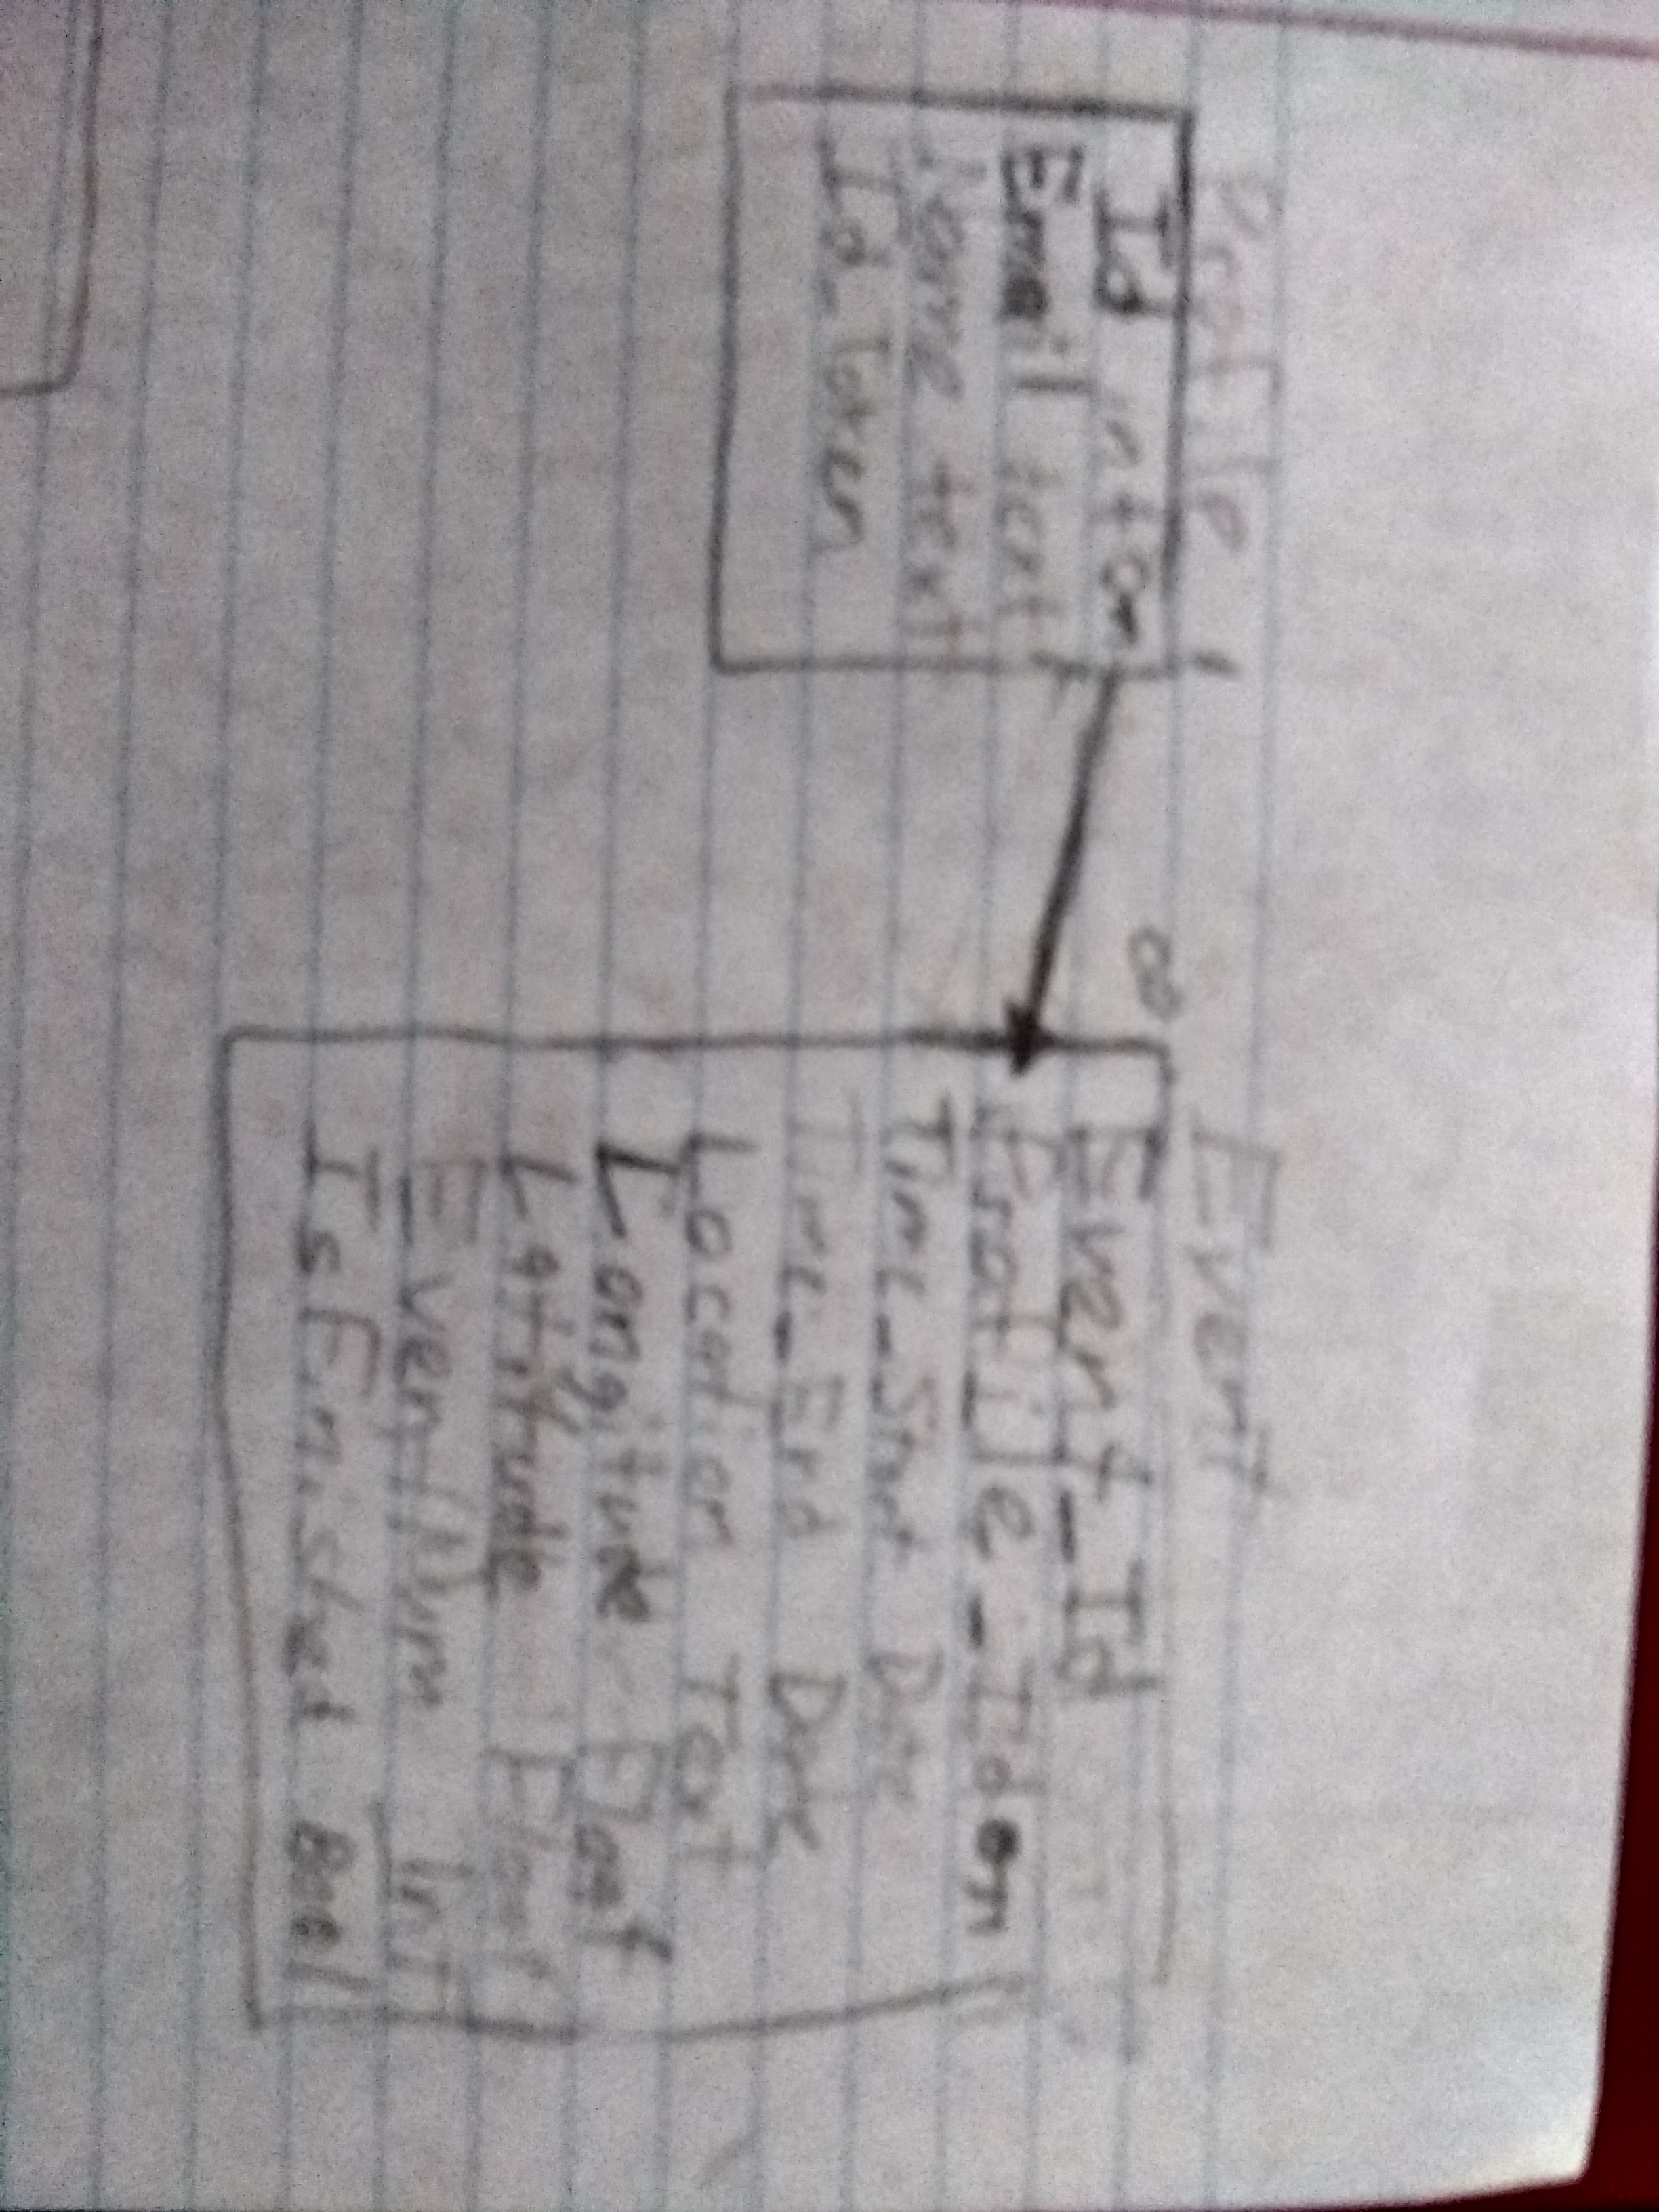 Profile 1
Id int on
Email text
Name text
Id_Token
∞
Event
Event_Id
Profile_Id on
Time_Start Date
Time_End Date
Location Text
Longitude Float
Latitude Float
EventNum Int
IsFinished Bool